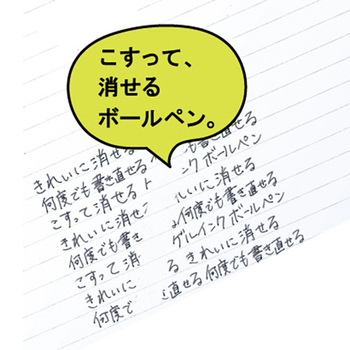 こすって、
消せる
ボールペン。
きれいに消せる
何度でも書き直せる
こすって消せる
きれいに消せ
何度でも書き
こすって消
きれいに
何度で
も書き直せる
ンクボールペン
れいに消せる
何度でも書き直せる
ゲルインクボールペン
る きれいに消せる
直せる何度でも書き直せる